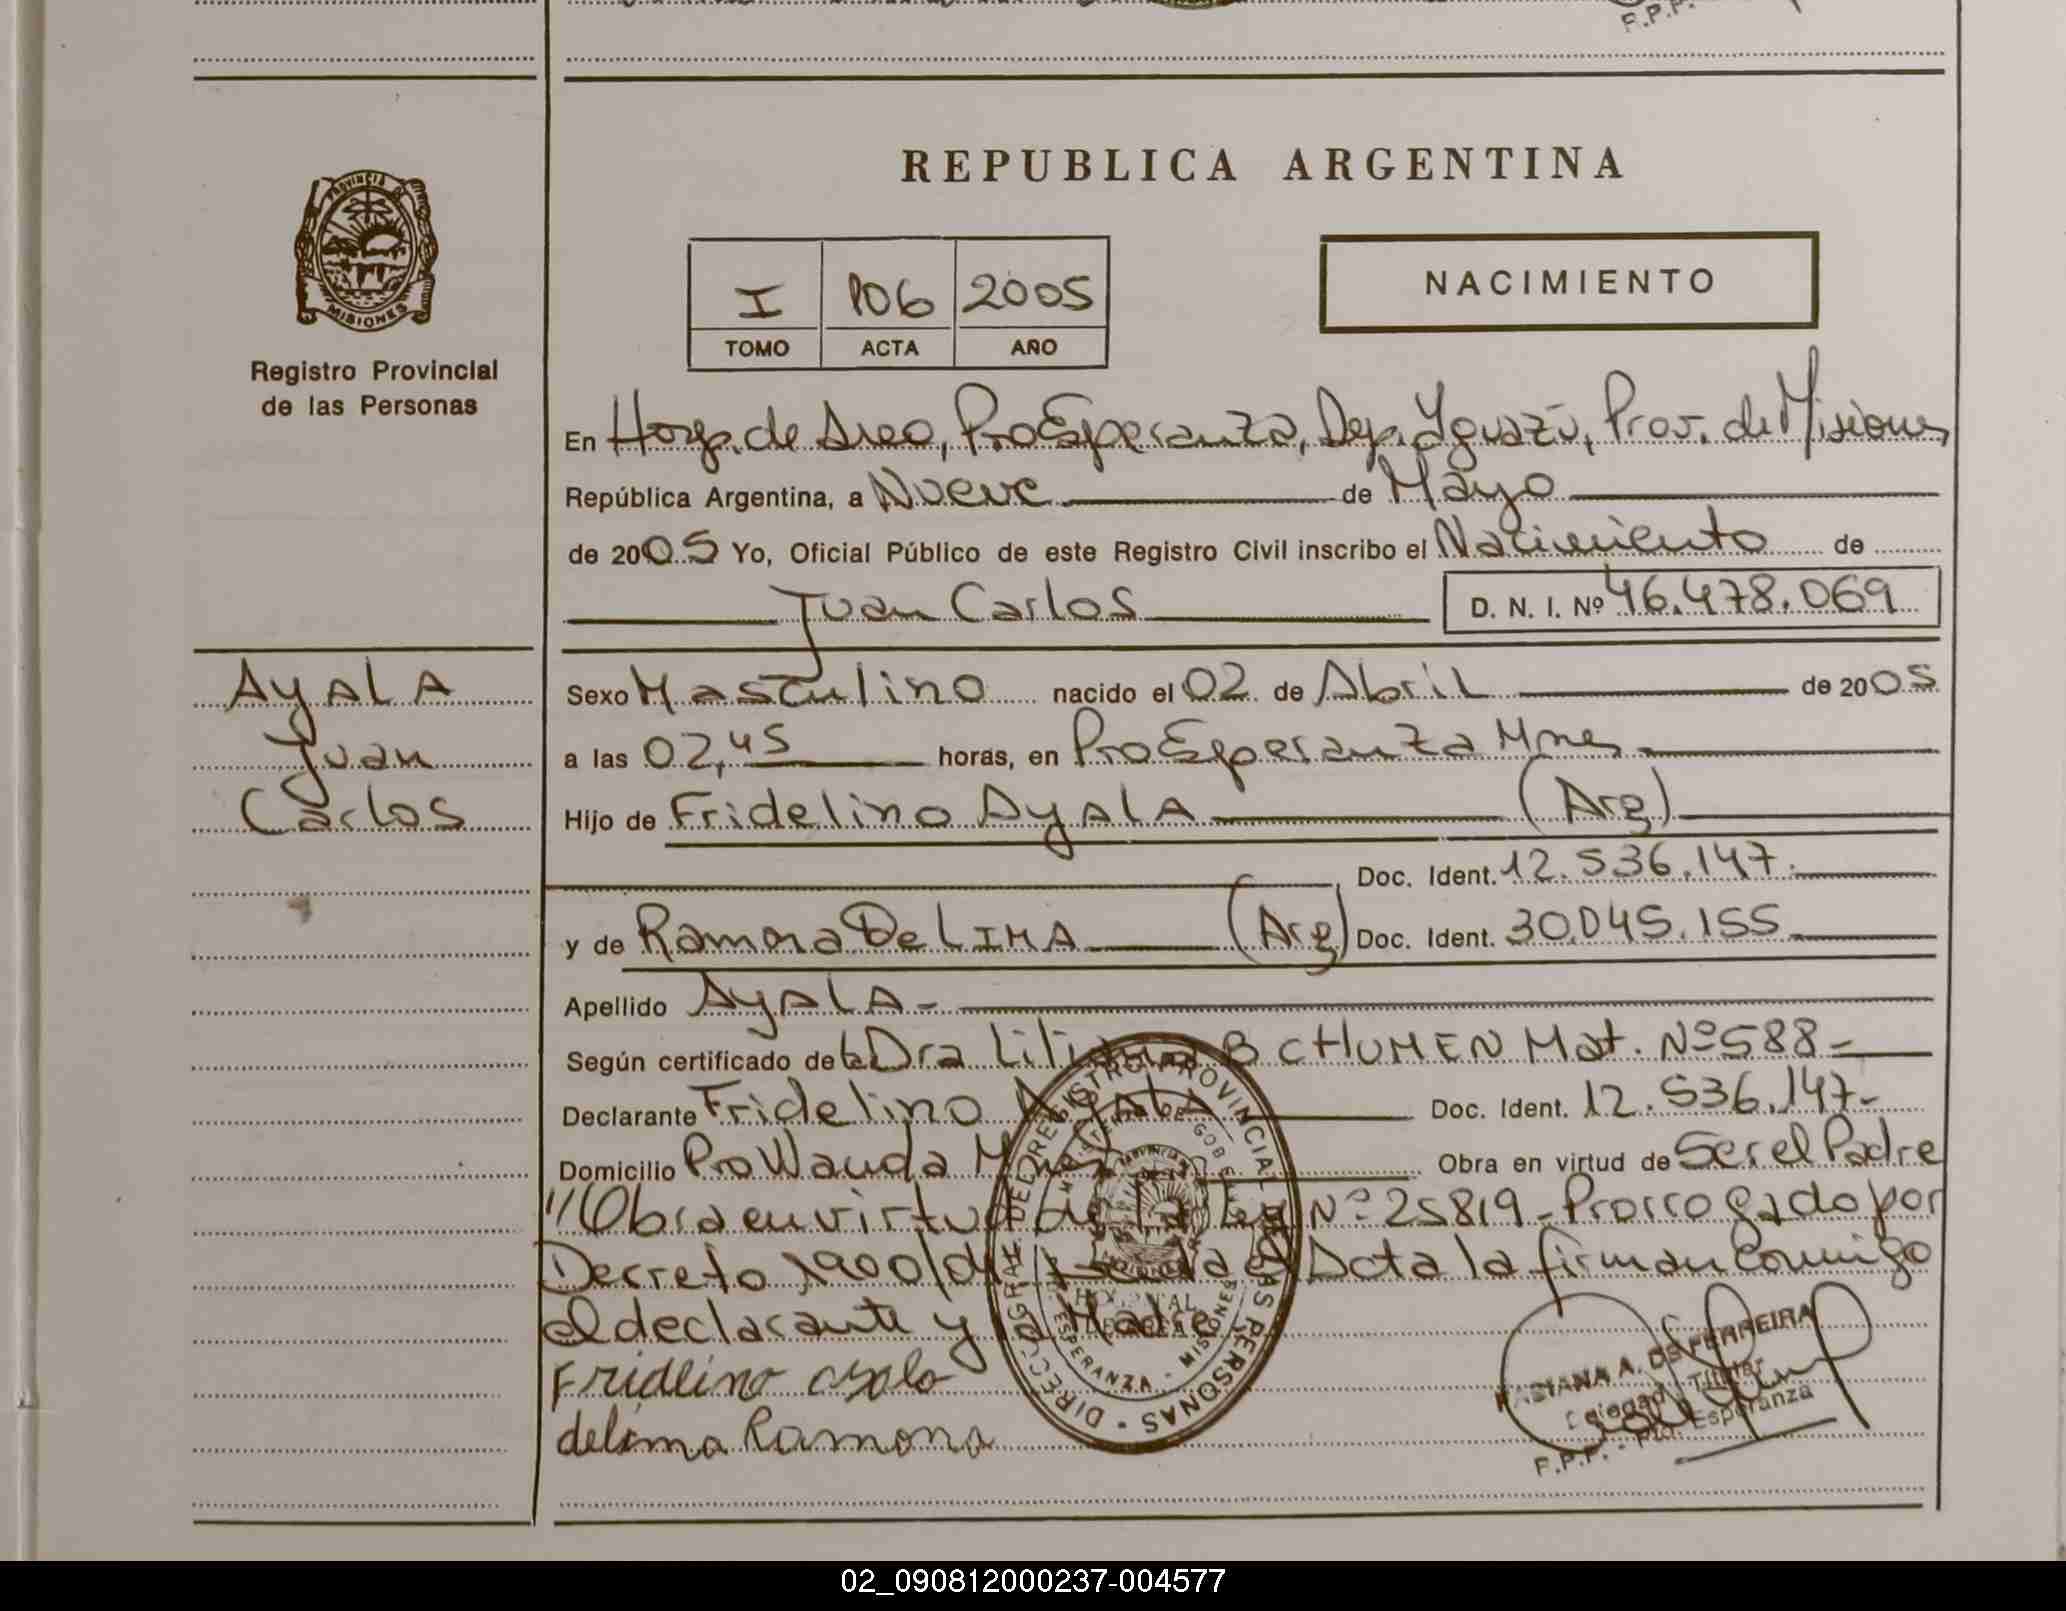 F.P.P.
REPUBLICA ARGENTINA
PROVINCIA DE
MISIONES
Registro Provincial
de las Personas
I 106 2005
TOMO ACTA AÑO
NACIMIENTO
En Hosp. de Area, Pto Esperanza, Dep. Iguazú, Prov. de Misiones
República Argentina, a Nueve de Mayo
de 2005 Yo, Oficial Público de este Registro Civil inscribo el Nacimiento de
Juan Carlos D. N. I. Nº 46.478.069
Ayala
Juan
Carlos
Sexo Masculino nacido el 02 de Abril de 2005
a las 02,45 horas, en Pto Esperanza Mnes
Hijo de Fridelino Ayala (Arg)
Doc. Ident. 12.536.147.
y de Ramona De Lima (Arg) Doc. Ident. 30.045.155
Apellido Ayala -
Según certificado de la Dra Liliana B CHUMEN Mat. Nº 588 -
Declarante Fridelino Ayala Doc. Ident. 12.536.147-
Domicilio Pto Wanda Mnes Obra en virtud de Ser el Padre
"Obra en virtud de la Ley Nº 25819 - Prorrogado por
Decreto 1900/04 el Acta la firman conmigo
el declarante y la Madre
Fridelino ayala
delima Ramona
DIREC. GRAL. DEL REGISTRO PROVINCIAL DE LAS PERSONAS
MINISTERIO DE GOBIERNO
HOSPITAL
ESPERANZA - MISIONES
FABIANA A. DE FERREIRA
Delegada Titular
F.P.P. - Pto. Esperanza
02_090812000237-004577